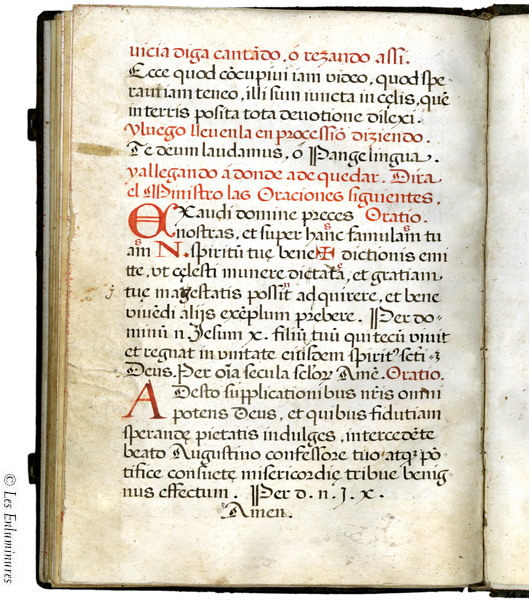 uicia diga cantãdo, ó rezando assi.
Ecce quod cõcupiui iam video, quod spe-
raui iam teneo, illi sum iuncta in cęlis, quẽ
in terris posita tota deuotione dilexi.
Yluego lleuenla en processiõ diziendo.
Te deum laudamus, ó Pange lingua.
yallegando á donde a de quedar. Dira
el Ministro las Oraciones siguientes.
EXaudi domine preces Oratio.
nostras, et super hanc famulam tu
s s
am N. spiritũ tuę bene✠dictionis emi
s
tte, vt cęlesti munere dictata, et gratiam
j tuę magestatis possit ad quirere, et bene
n
viuẽdi alijs exẽplum prębere. Per do-
minũ n Jesum x. filiũ tuũ qui tecũ viuit
et regnat in vnitate eiusdem spirit9 scti ꝫ
Deus. Per oĩa secula sclorꝝ Amẽ. Oratio.
ADesto supplicationibus nr̃is omni
potens Deus, et quibus fidutiam
sperandę pietatis indulges, intercedẽte
beato Augustino confessore tuo atqꝫ põ
tifice consuetę misericordię tribue benig-
nus effectum. Per d. n. J. x.
Amen.
© Les Enluminures